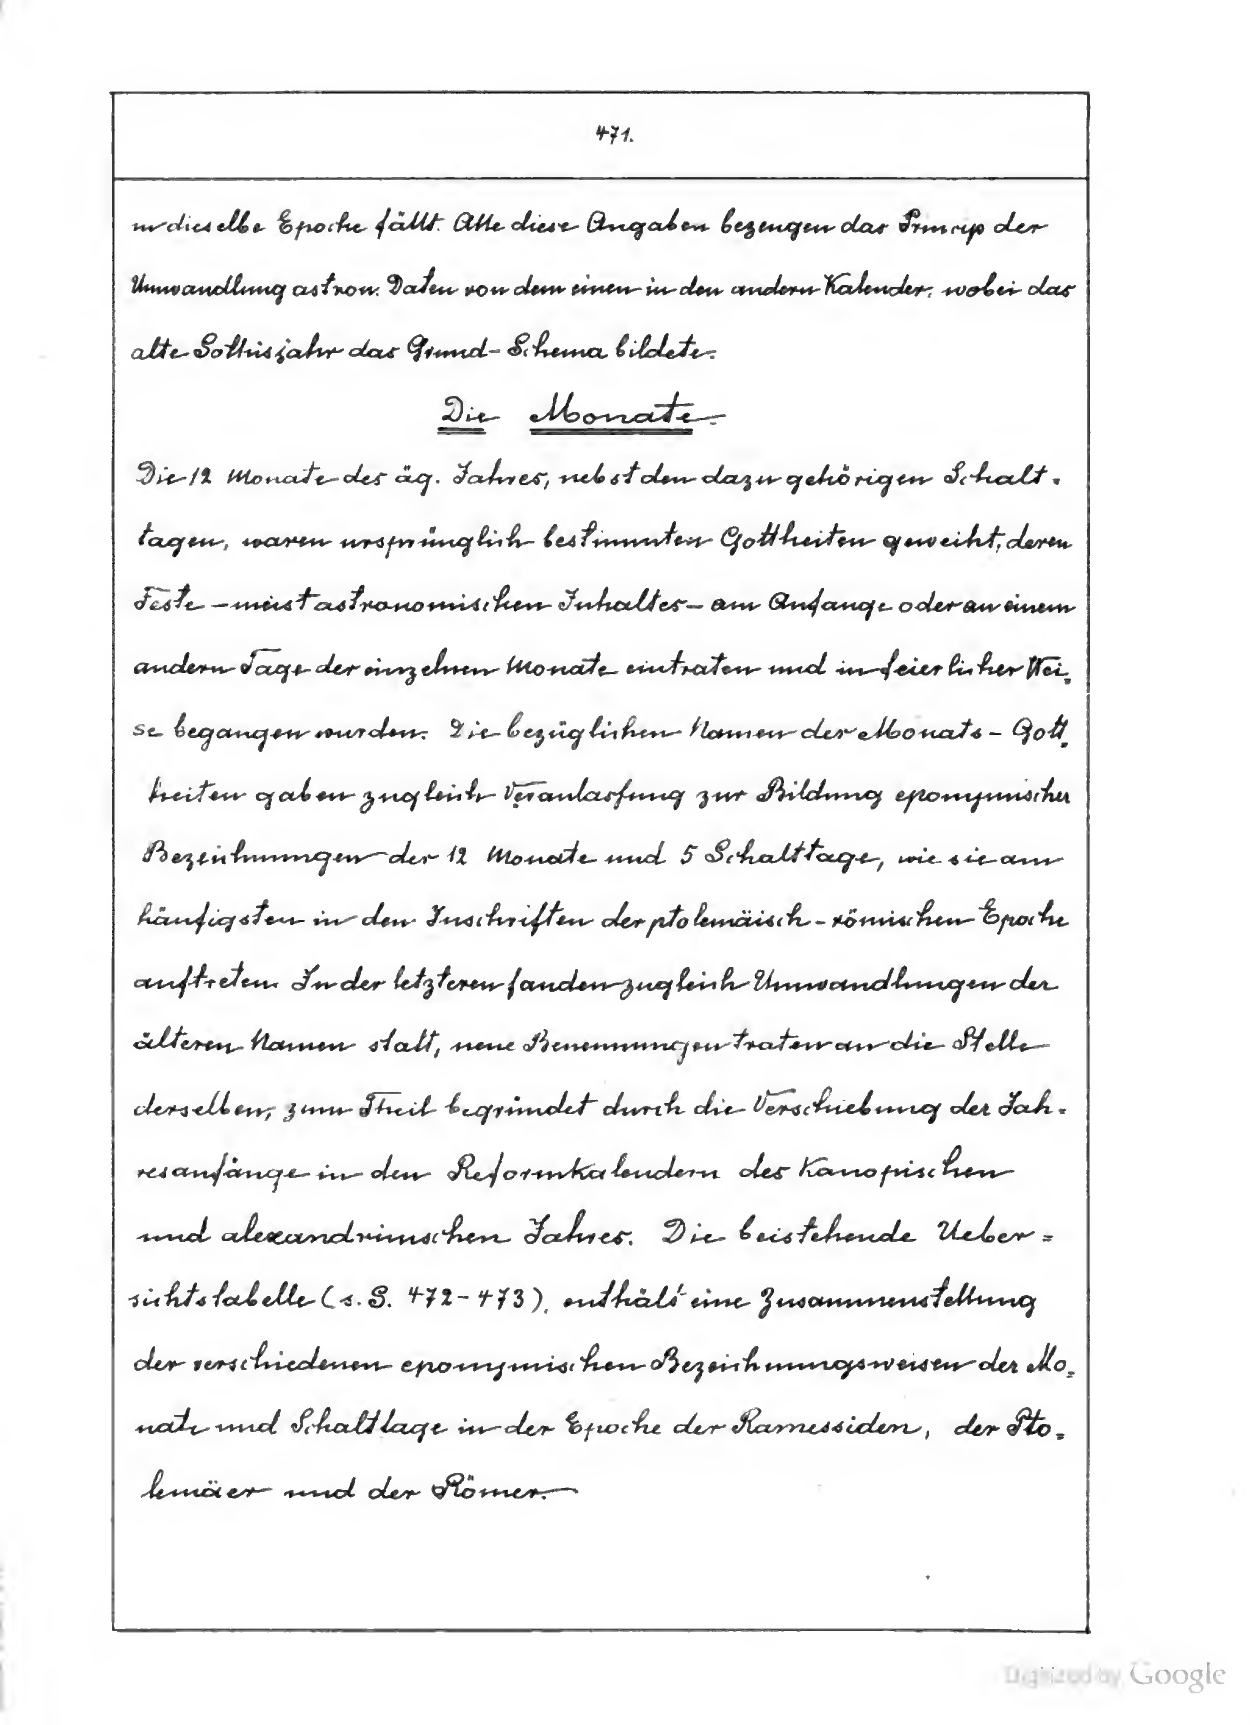 471.
in dieselbe Epoche fällt. Alle diese Angaben bezeugen das Princip der
Umwandlung astron. Daten von dem einen in den andern Kalender, wobei das
alte Sothisjahr das Grund-Schema bildete.
Die Monate.
Die 12 Monate des äg. Jahres, nebst den dazu gehörigen Schalt-
tagen, waren ursprünglich bestimmten Gottheiten geweiht, deren
Feste – meist astronomischen Inhaltes – am Anfange oder an einem
andern Tage der einzelnen Monate eintraten und in feierlicher Wei-
se begangen wurden. Die bezüglichen Namen der Monats-Gott-
heiten gaben zugleich Veranlassung zur Bildung eponymischer
Bezeichnungen der 12 Monate und 5 Schalttage, wie sie am
häufigsten in den Inschriften der ptolemäisch-römischen Epoche
auftreten. In der letzteren fanden zugleich Umwandlungen der
älteren Namen statt, neue Benennungen traten an die Stelle
derselben, zum Theil begründet durch die Verschiebung der Jah-
resanfänge in den Reformkalendern des Kanopischen
und alexandrinischen Jahres. Die beistehende Ueber=
sichtstabelle (s. S. 472-473), enthält eine Zusammenstellung
der verschiedenen eponymischen Bezeichnungsweisen der Mo=
nate und Schalttage in der Epoche der Ramessiden, der Pto=
lemäer und der Römer.
Digitized by Google